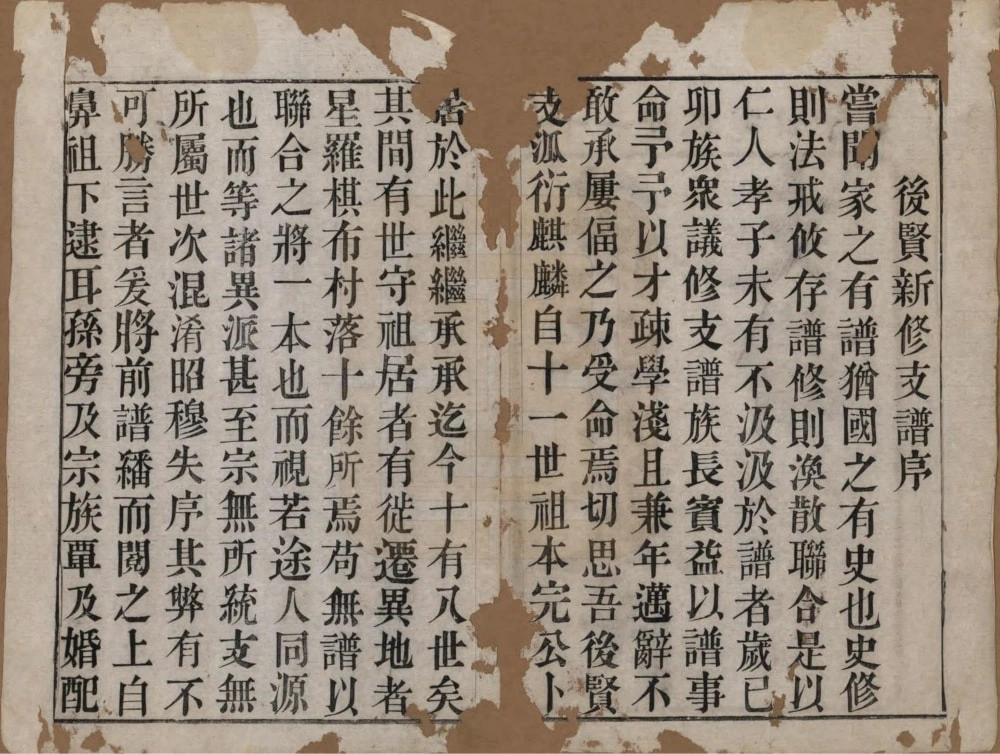 後賢新修支譜序
嘗聞家之有譜猶國之有史也史修
則法戒攸存譜修則渙散聯合是以
仁人孝子未有不汲汲於譜者歲己
卯族衆議修支譜族長賓益以譜事
命予予以才疎學淺且兼年邁辭不
敢承屢偪之乃受命焉切思吾後賢
支派衍麒麟自十一世祖本完公卜
居於此繼繼承承迄今十有八世矣
其間有世守祖居者有徙遷異地者
星羅棋布村落十餘所焉苟無譜以
聯合之將一本也而視若途人同源
也而等諸異派甚至宗無所統支無
所屬世次混淆昭穆失序其弊有不
可勝言者爰將前譜繙而閱之上自
鼻祖下逮耳孫旁及宗族覃及婚配